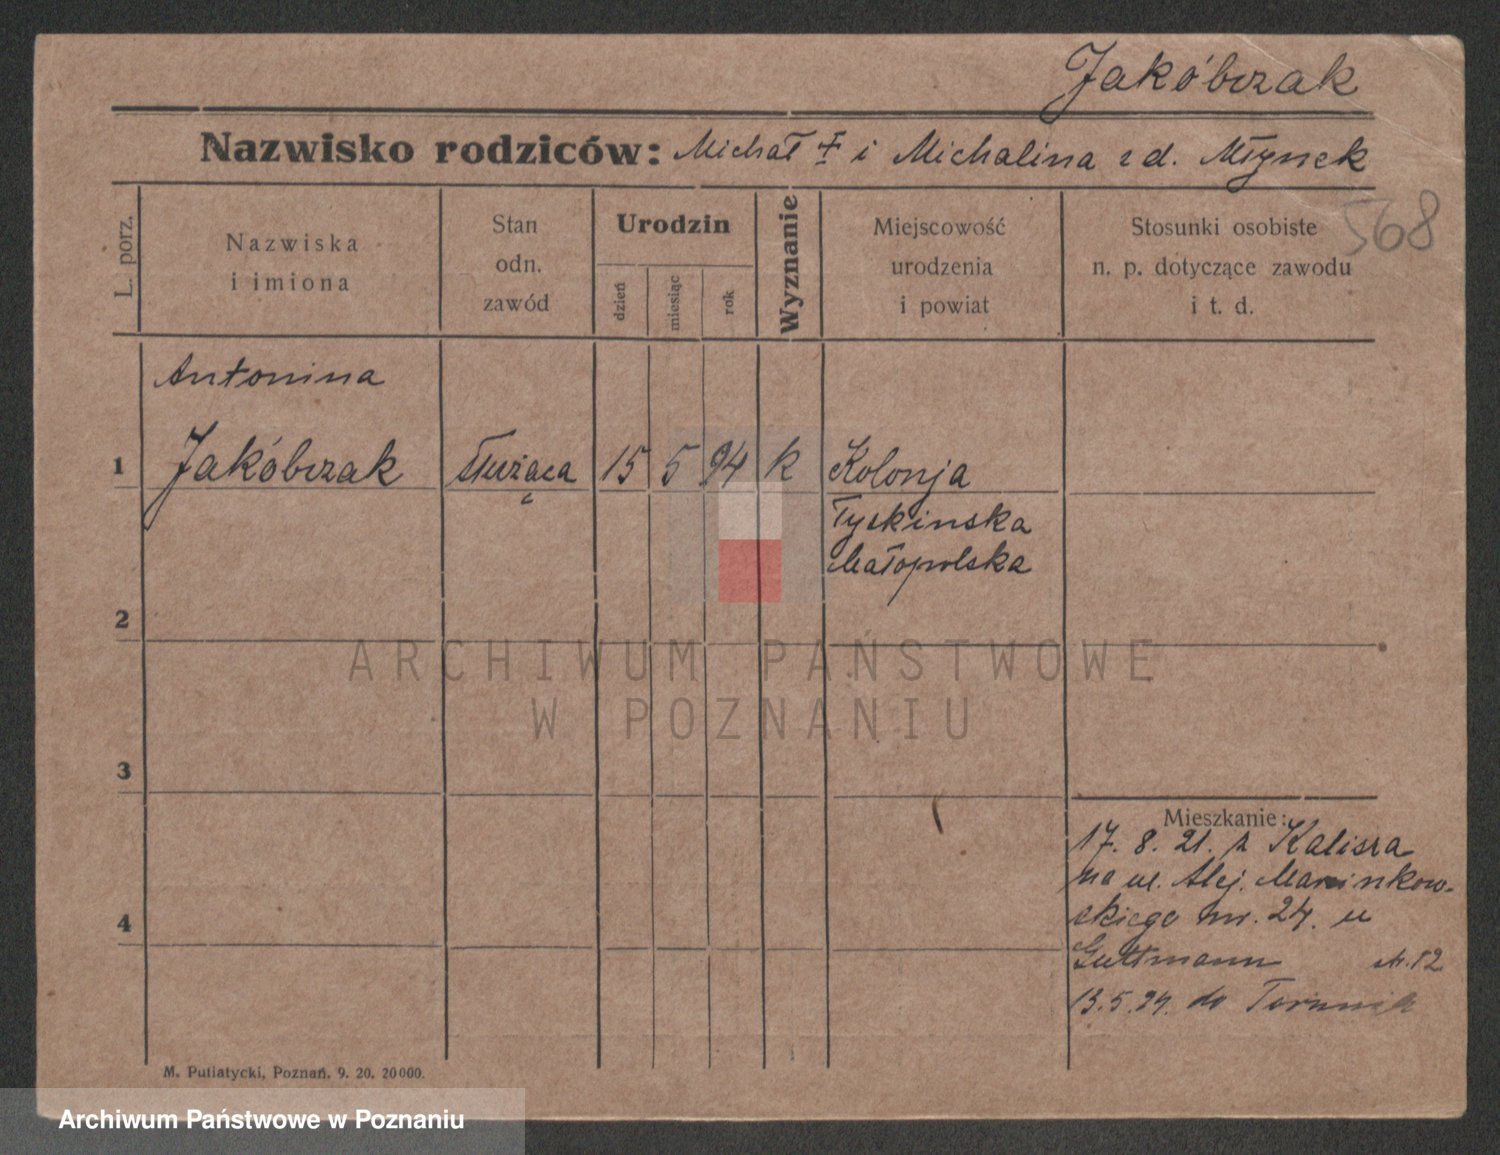 Jakóbczak
Nazwisko rodziców: Michał † i Michalina z d. Młynek
568
L. porz.
Nazwiska
i imiona
Stan
odn.
zawód
Urodzin
dzień
miesiąc
rok
Wyznanie
Miejscowość
urodzenia
i powiat
Stosunki osobiste
n. p. dotyczące zawodu
i t. d.
Antonina
1 Jakóbczak służąca 15 5 94 k Kolonja
Tyskinska
Małopolska
2
ARCHIWUM PAŃSTWOWE
W POZNANIU
3
Mieszkanie:
17. 8. 21. z Kalisza
na ul. Alej. Marcinkow-
skiego nr. 24. u
4
Guttmann m. 12
13.5.24. do Torunia
M. Putiatycki, Poznań. 9. 20. 20000.
Archiwum Państwowe w Poznaniu